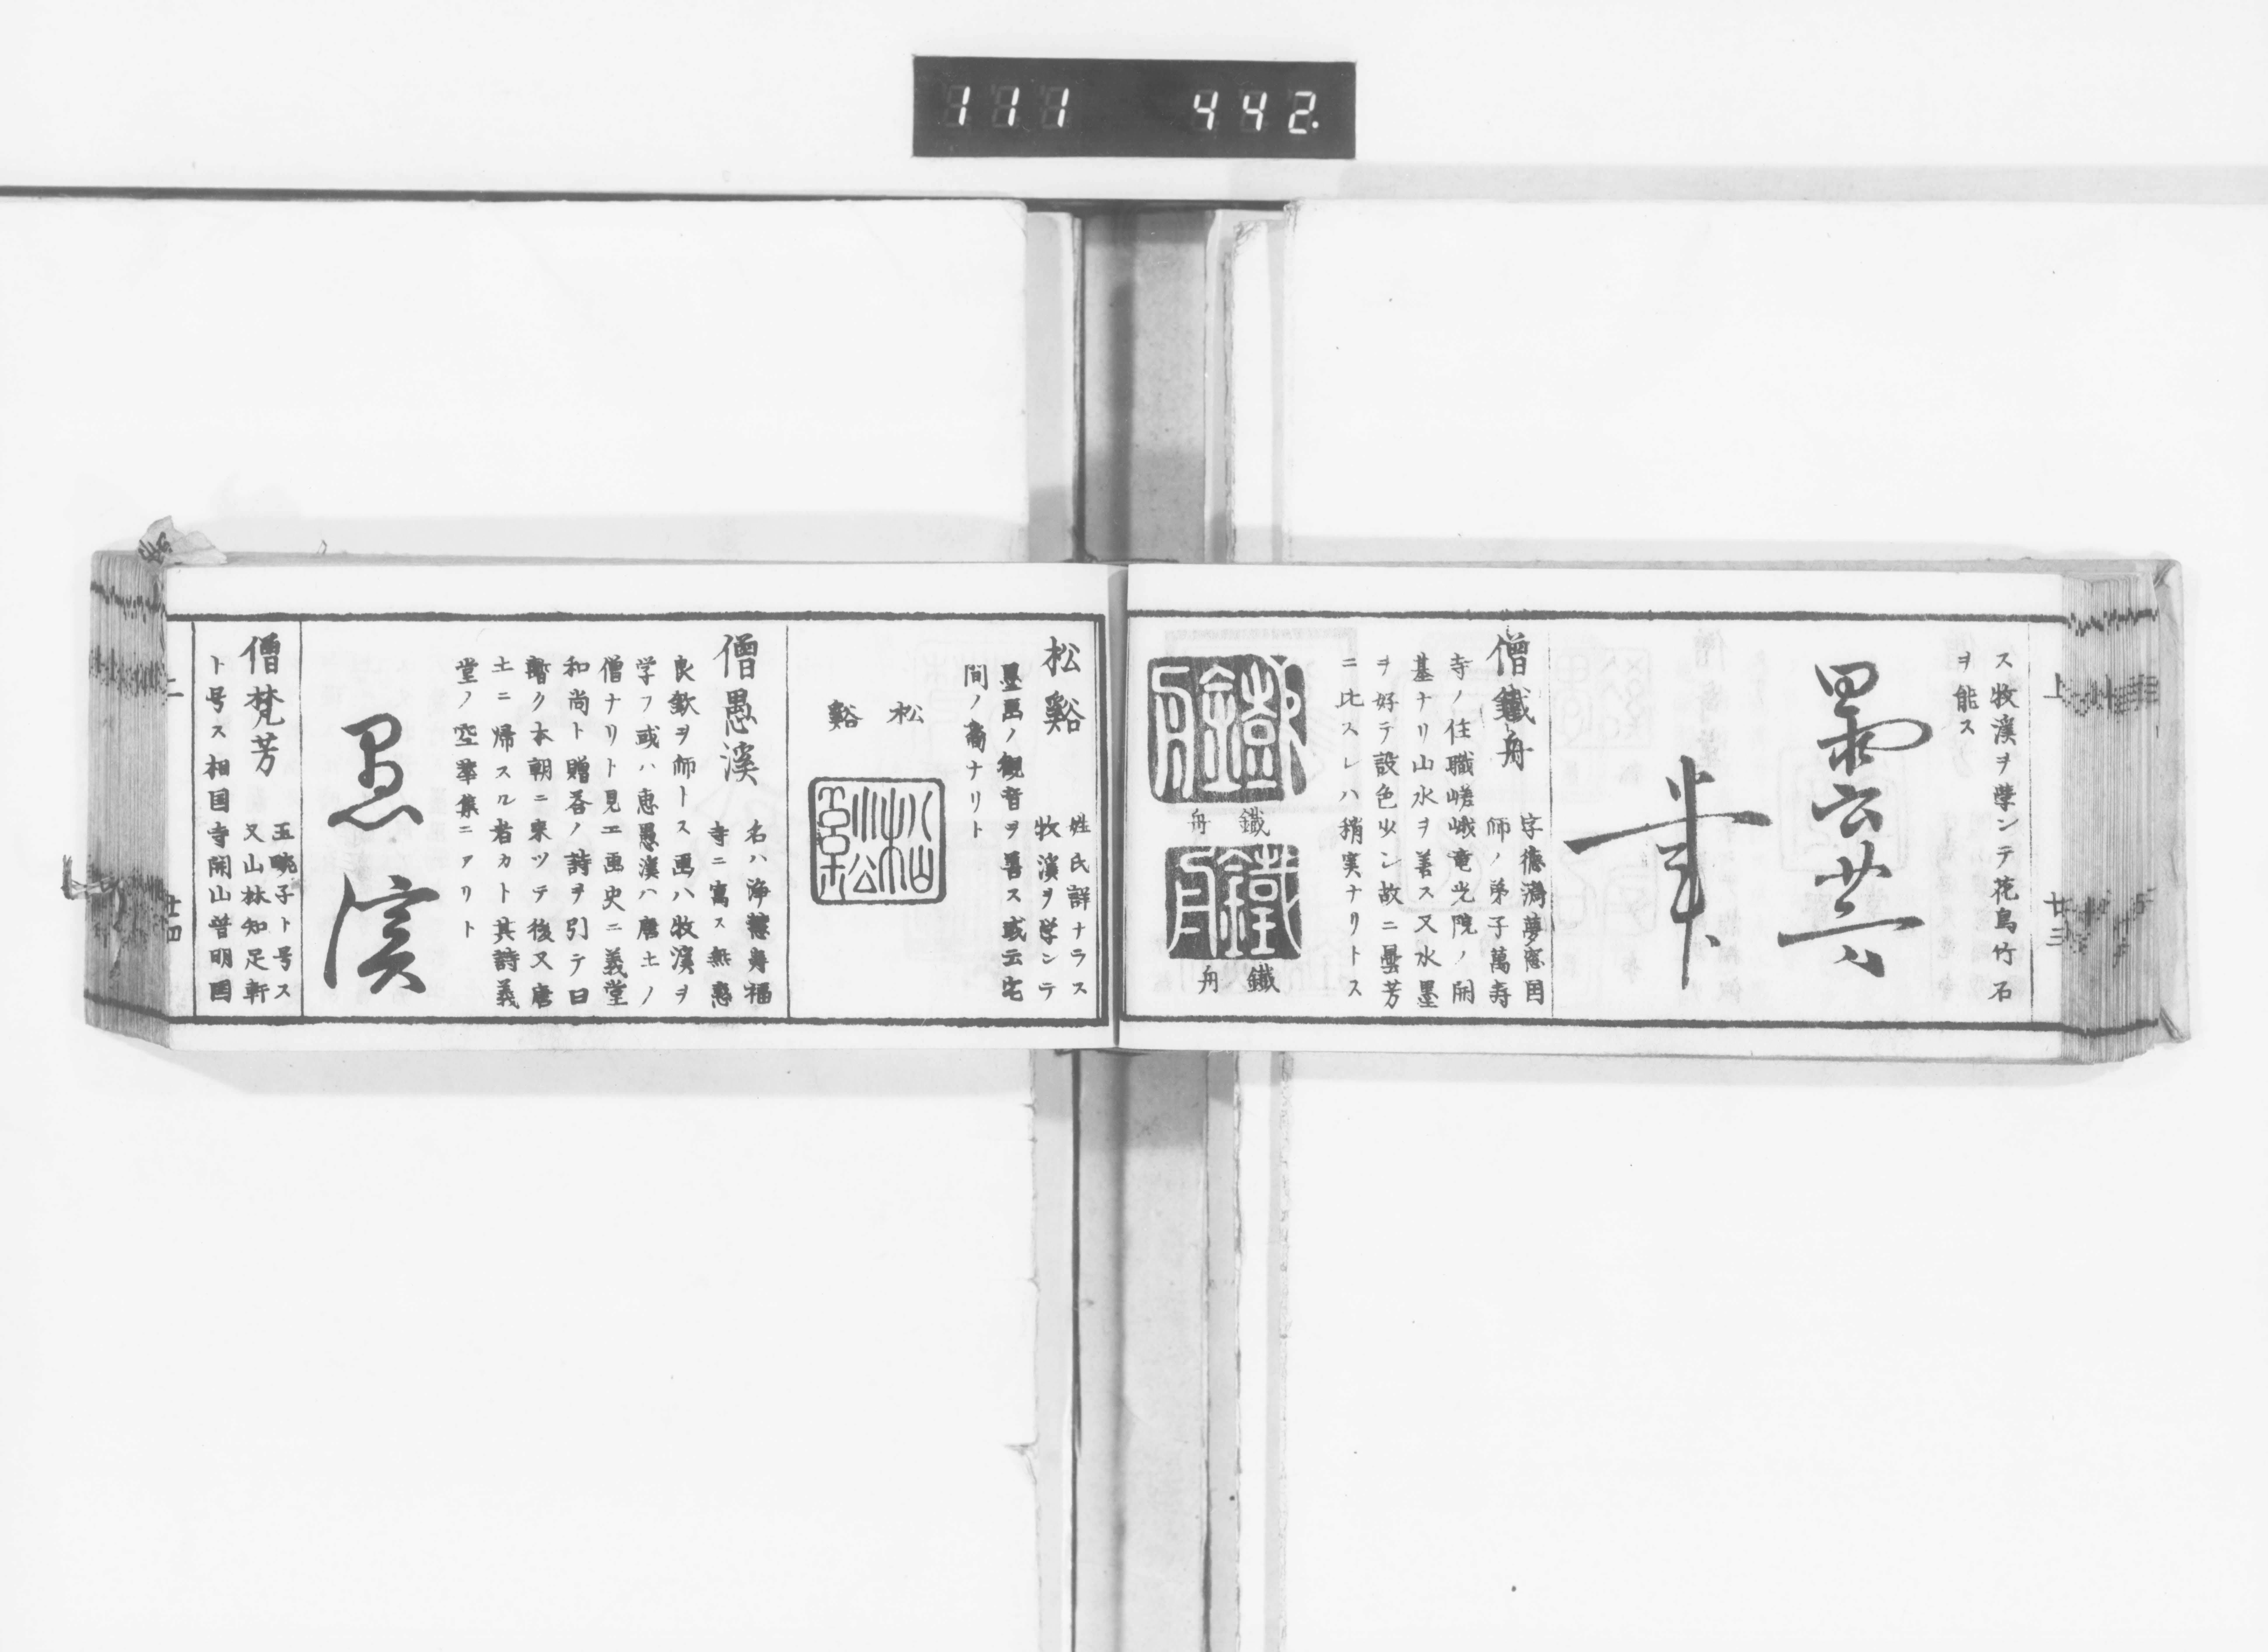 111 442.
上
廿三
ス牧溪ヲ學ンテ花鳥竹石
ヲ能ス
僧鐵舟
字德濟夢窓国
師ノ弟子萬壽
寺ノ住職嵯峨竜光院ノ開
基ナリ山水ヲ善ス又水墨
ヲ好テ設色少ン故ニ曇芳
ニ比スレハ稍実ナリトス
鐵舟
鐵舟
松谿
姓氏詳ナラス
牧溪ヲ学ンテ
墨画ノ観音ヲ善ス或云宅
間ノ裔ナリト
松
谿
松谿
僧愚溪
名ハ浄慧寿福
寺ニ寓ス無惑
良欽ヲ師トス画ハ牧溪ヲ
学フ或ハ恵愚溪ハ唐土ノ
僧ナリト見エ画史ニ義堂
和尚ト贈答ノ詩ヲ引テ曰
暫ク本朝ニ来ツテ後又唐
土ニ帰スル者カト其詩義
堂ノ空華集ニアリト
愚溪
僧梵芳
玉畹子ト号ス
又山林知足軒
ト号ス相国寺開山普明国
上
廿四